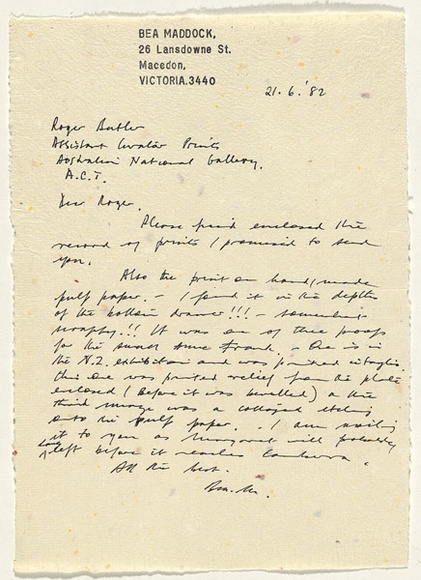 BEA MADDOCK,
26 Lansdowne St.
Macedon,
VICTORIA.3440
21.6.'82
Roger Butler
Assistant Curator Prints
Australian National Gallery.
A.C.T.
Dear Roger,
Please find enclosed the
record of prints I promised to send
you.
Also the print on hand/made
pulp paper. – I found it in the depths
of the bottom drawer!!! – somewhat
!! It was one of three proofs
for the small . – One is in
the N.Z. exhibition and was printed intaglio.
this one was printed relief from the plate
enclosed (before it was bevelled) & the
third image was a collaged etching
onto the pulp paper. . I am mailing
it to you as Margaret will probably
have left before it reaches Canberra.
All the best.
Bea. M.